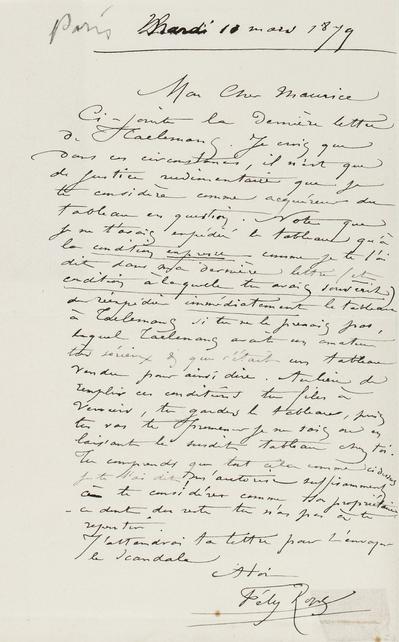 Paris Mardi 10 mars 1879
Mon Cher Maurice
Ci-jointe la dernière lettre
de Taelemans. Je crois que
dans ces circonstances, il n'est que
de justice rudimentaire que je
te considère comme acquéreur du
tableau en question. Note que
je ne t'avais expédié le tableau qu'à
la condition expresse comme je te l'ai
dit dans ma dernière lettre (et
condition à laquelle tu avais souscrit)
de réexpédier immédiatement le tableau
à Taelemans si tu ne le prenais pas,
lequel Taelemans avait un amateur
très sérieux & que c'était un tableau
vendu pour ainsi dire. Au lieu de
remplir ces conditions tu files à
, tu gardes le tableau, puis
tu vas te promener je ne sais où en
laissant le susdit tableau chez toi.
Tu comprends que tout cela comme ci dessus
je te l'ai dit m'autorise suffisamment
à te considérer comme son propriétaire
- ce dont du reste tu n'as pas à te
repentir.
J'attendrai ta lettre pour l'envoyer
le Scandale
A toi
Fély Rops